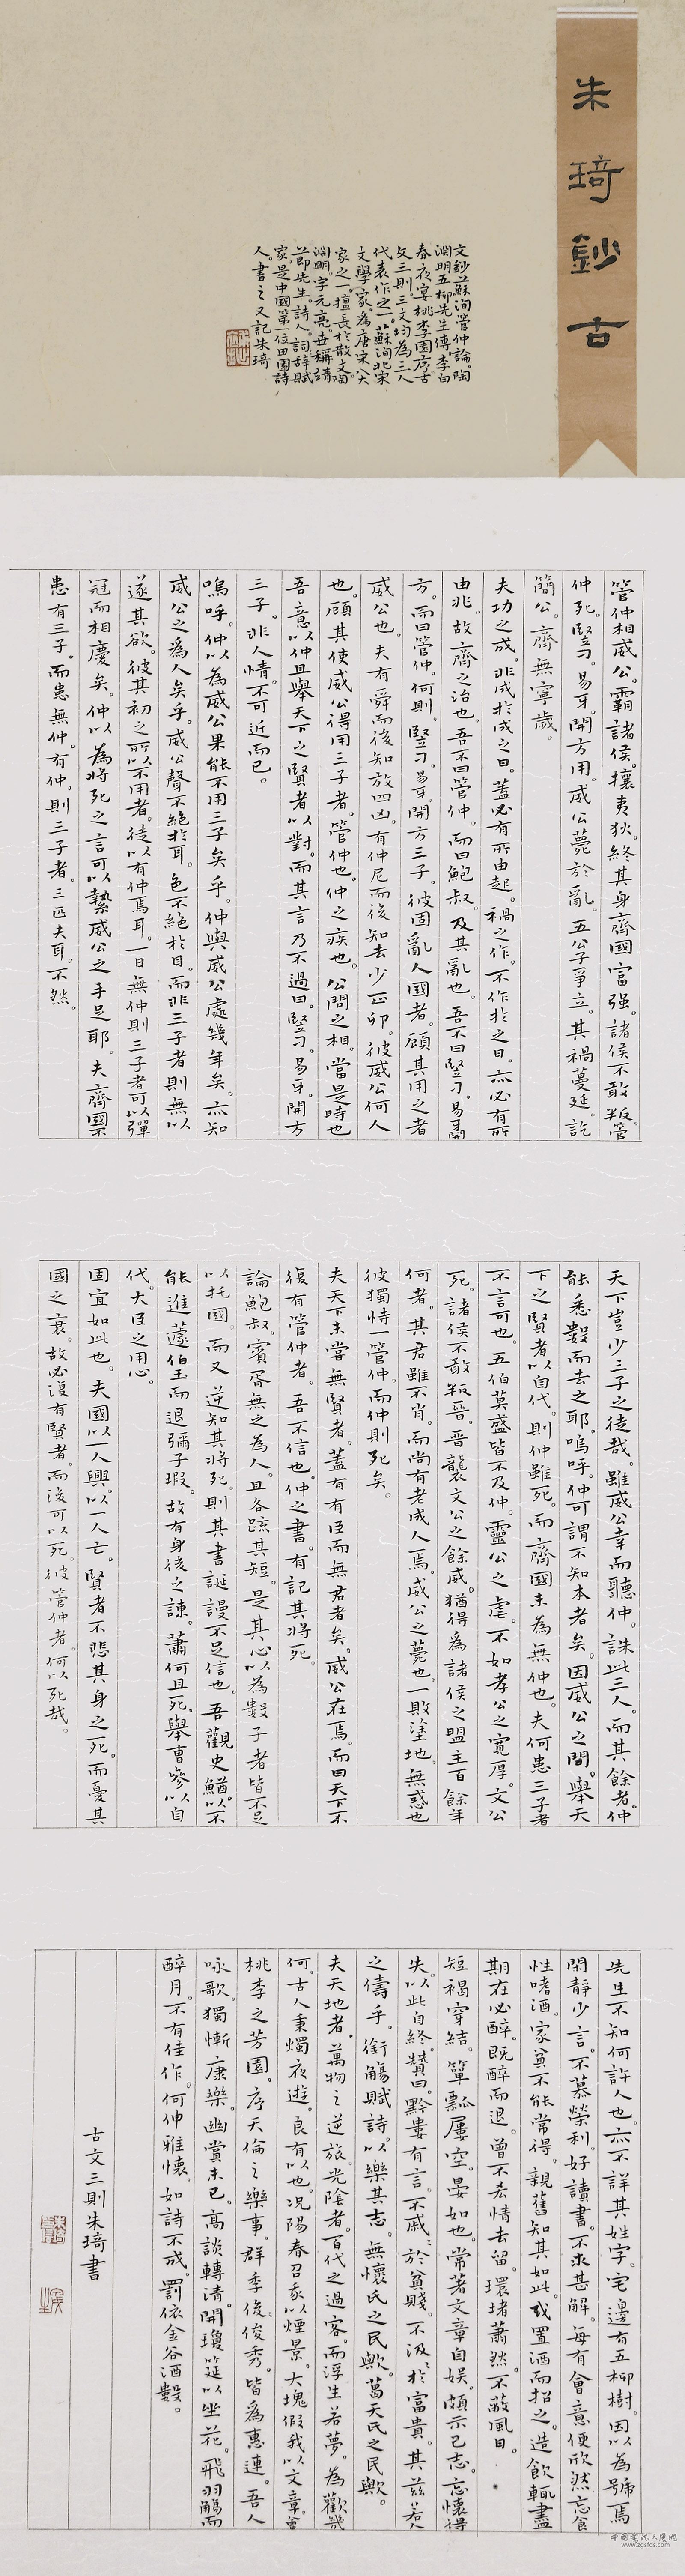 朱琦鈔古
文鈔蘇洵管仲論。陶
淵明五柳先生傳李白
春夜宴桃李園序古
文三則三文均為三人
代表作之一。蘇洵北宋
文學家。為唐宋八大
家之一。擅長於散文陶
淵明。字元亮。世稱靖
節先生。詩人。詞辞賦
家。是中國第一位田園詩
人。書之又記朱琦
管仲相威公。霸諸侯。攘夷狄。終其身齊國富强。諸侯不敢叛。管
仲死。豎刁。易牙。開方用。威公薨於亂。五公子爭立。其禍蔓延。訖
簡公。齊無寧歲。
夫功之成。非成於成之日。蓋必有所由起。禍之作。不作於之日。亦必有所
由兆。故齊之治也。吾不曰管仲。而曰鮑叔。及其亂也。吾不曰豎刁。易牙開
方。而曰管仲。何則。豎刁。易牙。開方三子。彼固亂人國者。顧其用之者
威公也。夫有舜而後知放四凶。有仲尼而後知去少正卯。彼威公何人
也。顧其使威公得用三子者。管仲也。仲之疾也。公問之相。當是時也
吾意以仲且舉天下之賢者以對。而其言乃不過曰。豎刁。易牙。開方
三子。非人情。不可近而已。
嗚呼。仲以為威公果能不用三子矣乎。仲與威公處幾年矣。亦知
威公之為人矣乎。威公聲不絕於耳。色不絕於目。而非三子者則無以
遂其欲。彼其初之所以不用者。徒以有仲焉耳。一日無仲則三子者可以彈
冠而相慶矣。仲以為將死之言可以縶威公之手足耶。夫齊國不
患有三子。而患無仲。有仲。則三子者。三匹夫耳。不然。
天下豈少三子之徒哉。雖威公幸而聽仲。誅此三人。而其餘者。仲
能悉數而去之耶。嗚呼。仲可謂不知本者矣。因威公之問。舉天
下之賢者以自代。則仲雖死。而齊國未為無仲也。夫何患三子者
不言可也。五伯莫盛皆不及仲。靈公之虐。不如孝公之寬厚。文公
死。諸侯不敢叛晉。晉襲文公之餘威。猶得為諸侯之盟主百餘年
何者。其君雖不肖。而尚有老成人焉。威公之薨也。一敗塗地。無惑也
彼獨恃一管仲。而仲則死矣。
夫天下未嘗無賢者。蓋有有臣而無君者矣。威公在焉。而曰天下不
復有管仲者。吾不信也。仲之書。有記其將死。
論鮑叔。賓胥無之為人。且各疏其短。是其心以為數子者皆不足
以托國。而又逆知其將死。則其書誕謾不足信也。吾觀史鰌。以不
能進蘧伯玉而退彌子瑕。故有身後之諫。蕭何且死。舉曹參以自
代。大臣之用心。
固宜如此也。夫國以一人興。以一人亡。賢者不悲其身之死。而憂其
國之衰。故必復有賢者。而後可以死。彼管仲者。何以死哉。
先生不知何許人也。亦不詳其姓字。宅邊有五柳樹。因以為號焉
閑靜少言。不慕榮利。好讀書。不求甚解。每有會意便欣然忘食
性嗜酒。家貧不能常得。親舊知其如此。或置酒而招之。造飲輒盡
期在必醉。既醉而退。曾不吝情去留。環堵蕭然。不蔽風日。
短褐穿結。簞瓢屢空。晏如也。常著文章自娛。頗示己志。忘懷得
失。以此自終。贊曰。黔婁有言。不戚戚於貧賤。不汲汲於富貴。其茲若人
之儔乎。銜觴賦詩。以樂其志。無懷氏之民歟。葛天氏之民歟。
夫天地者。萬物之逆旅。光陰者。百代之過客。而浮生若夢。為歡幾
何。古人秉燭夜遊。良有以也。況陽春召我以煙景。大塊假我以文章。會
桃李之芳園。序天倫之樂事。群季俊俊秀。皆為惠連。吾人
咏歌。獨慚康樂。幽賞未已。高談轉清。開瓊筵以坐花。飛羽觴而
醉月。不有佳作。何伸雅懷。如詩不成。罰依金谷酒數。
古文三則朱琦書
中国书法人才网
www.zgsfds.com